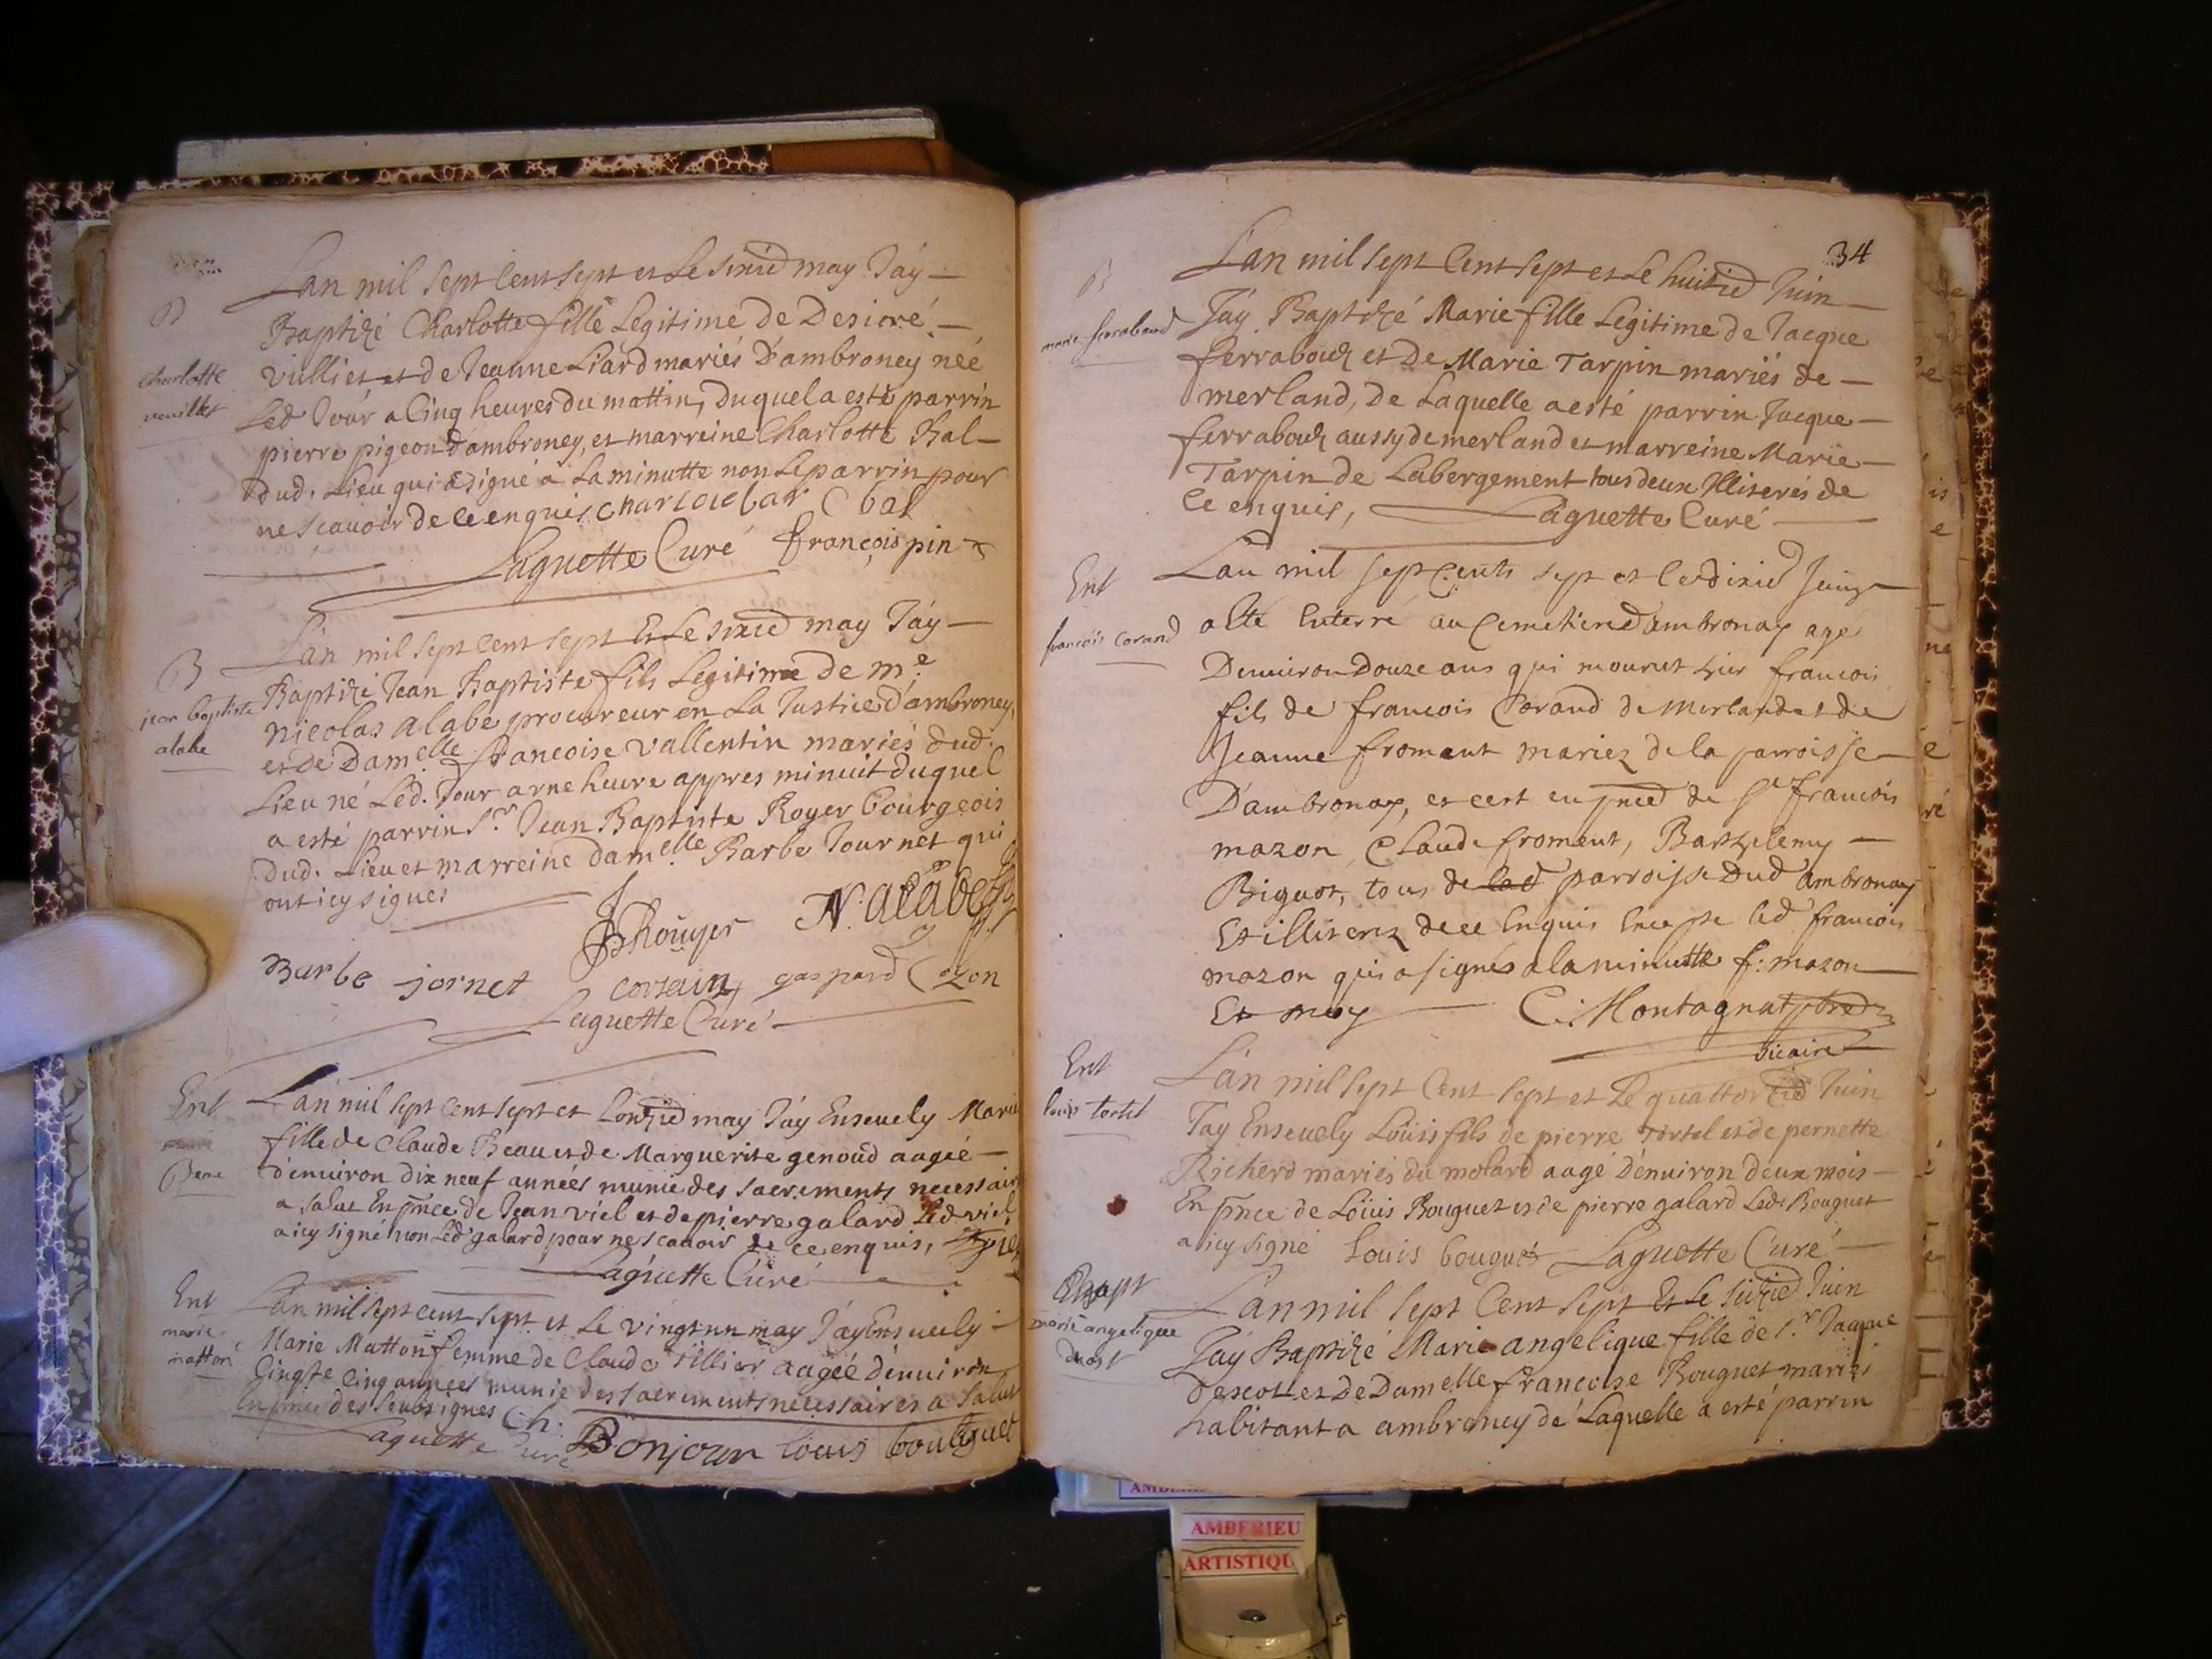 B
charlotte
veuillet
Lan mil sept cent sept et Le sixie may Jáy
Baptizé Charlotte fille Legitime de Desiré
vulliet et de Jeanne Liard mariés D'ambroney née
Led Jour a Cinq heures du mattin, duquel a esté parrin
pierre pigeon d'ambroney, et marreine Charlotte Bal
dud. Lieu qui a signé a La minutte non Le parrin pour
ne scavoir de ce enquis charlote bal C bal
Laguette Curé françois pin
B
jean baptiste
alabe
L'an mil sept cent sept Et Le sixie may Jáy
Baptizé Jean Baptiste fils Legitime de me
Nicolas alabe procureur en La Justice d'ambroney,
et De Damelle francoise vallentin mariés dud.
Lieu né Led. Jour a une heure appres minuit duquel
a esté parrin Sr Jean Baptiste Royer bourgeois
Dud. Lieu et marreine damelle Barbe Journet qui
ont icy signés
JBRouyer N. Alabe
Barbe jornet gaspard Cozon
Laguette Curé
Ent
Beau
L'an mil sept cent sept et Lonzie may Jáy Ensevely Marie
fille de Claude Beau et de Marguerite genoud aagée
d'environ dix neuf années munie des sacrements necessair
a salut En pnce de Jean viel et de pierre galard Led viel
a icy signé non Led galard pour ne scavoir de ce enquis,
Laguette Curé
Ent
marie
matton
Lan mil sept cent sept et Le vingt un may J'ay Ensevely
Marie Matton femme de Claude tillier aagée d'environ
Cinqte Cinq années munie des sacrements necessaires a salut
En pnce des soubsignes Ch.
Laguette Curé Bonjour louis bouguet
34
B
marie ferraboud
L'an mil sept Cent sept et Le huitie Juin
Jáy Baptizé Marie fille Legitime de Jacque
ferraboud et De Marie Tarpin mariés de
merland, De Laquelle a esté parrin Jacque
ferraboud aussy de merland et marreine Marie
Tarpin de Labergement tous deux Illiterés de
Ce enquis, Laguette Curé
Ent
francois Corand
Lan mil sept Cents sept et le dixie Juin
a Eté Enterré au Cemetiere d'ambronay agé
Denviron Douze ans qui mourut hier francois
fils de francois Corand de merland et de
Jeanne froment mariez de la parroisse
D'ambronay, et cest en pnce de Sr francois
mazon, Claude froment, Barthelemy
Biguot, tous de lad parroisse Dud ambronay
Et illiterez de ce Enquis Excepte led francois
mazon qui a signés a la minutte f: mazon
Et moy C. Montagnat pbre
vicaire
Ent
louis tortel
L'an mil sept Cent sept et Le quattorzie Juin
Jay Ensevely Loüis fils de pierre Tortel et de pernette
Richerd mariés du molard aagé D'environ deux mois
En pnce de Loüis Bouguet et de pierre galard Led. Bouguet
a icy signé Louis bouguet Laguette Curé
Bapt
marie angelique
L'an mil sept Cent sept Et Le seizie Juin
Jáy Baptizé Marie angelique fille de Sr Jacque
et De Damelle francoise Bouguet mariés
habitant a ambroney de Laquelle a esté parrin
AMBERIEU
ARTISTIQU